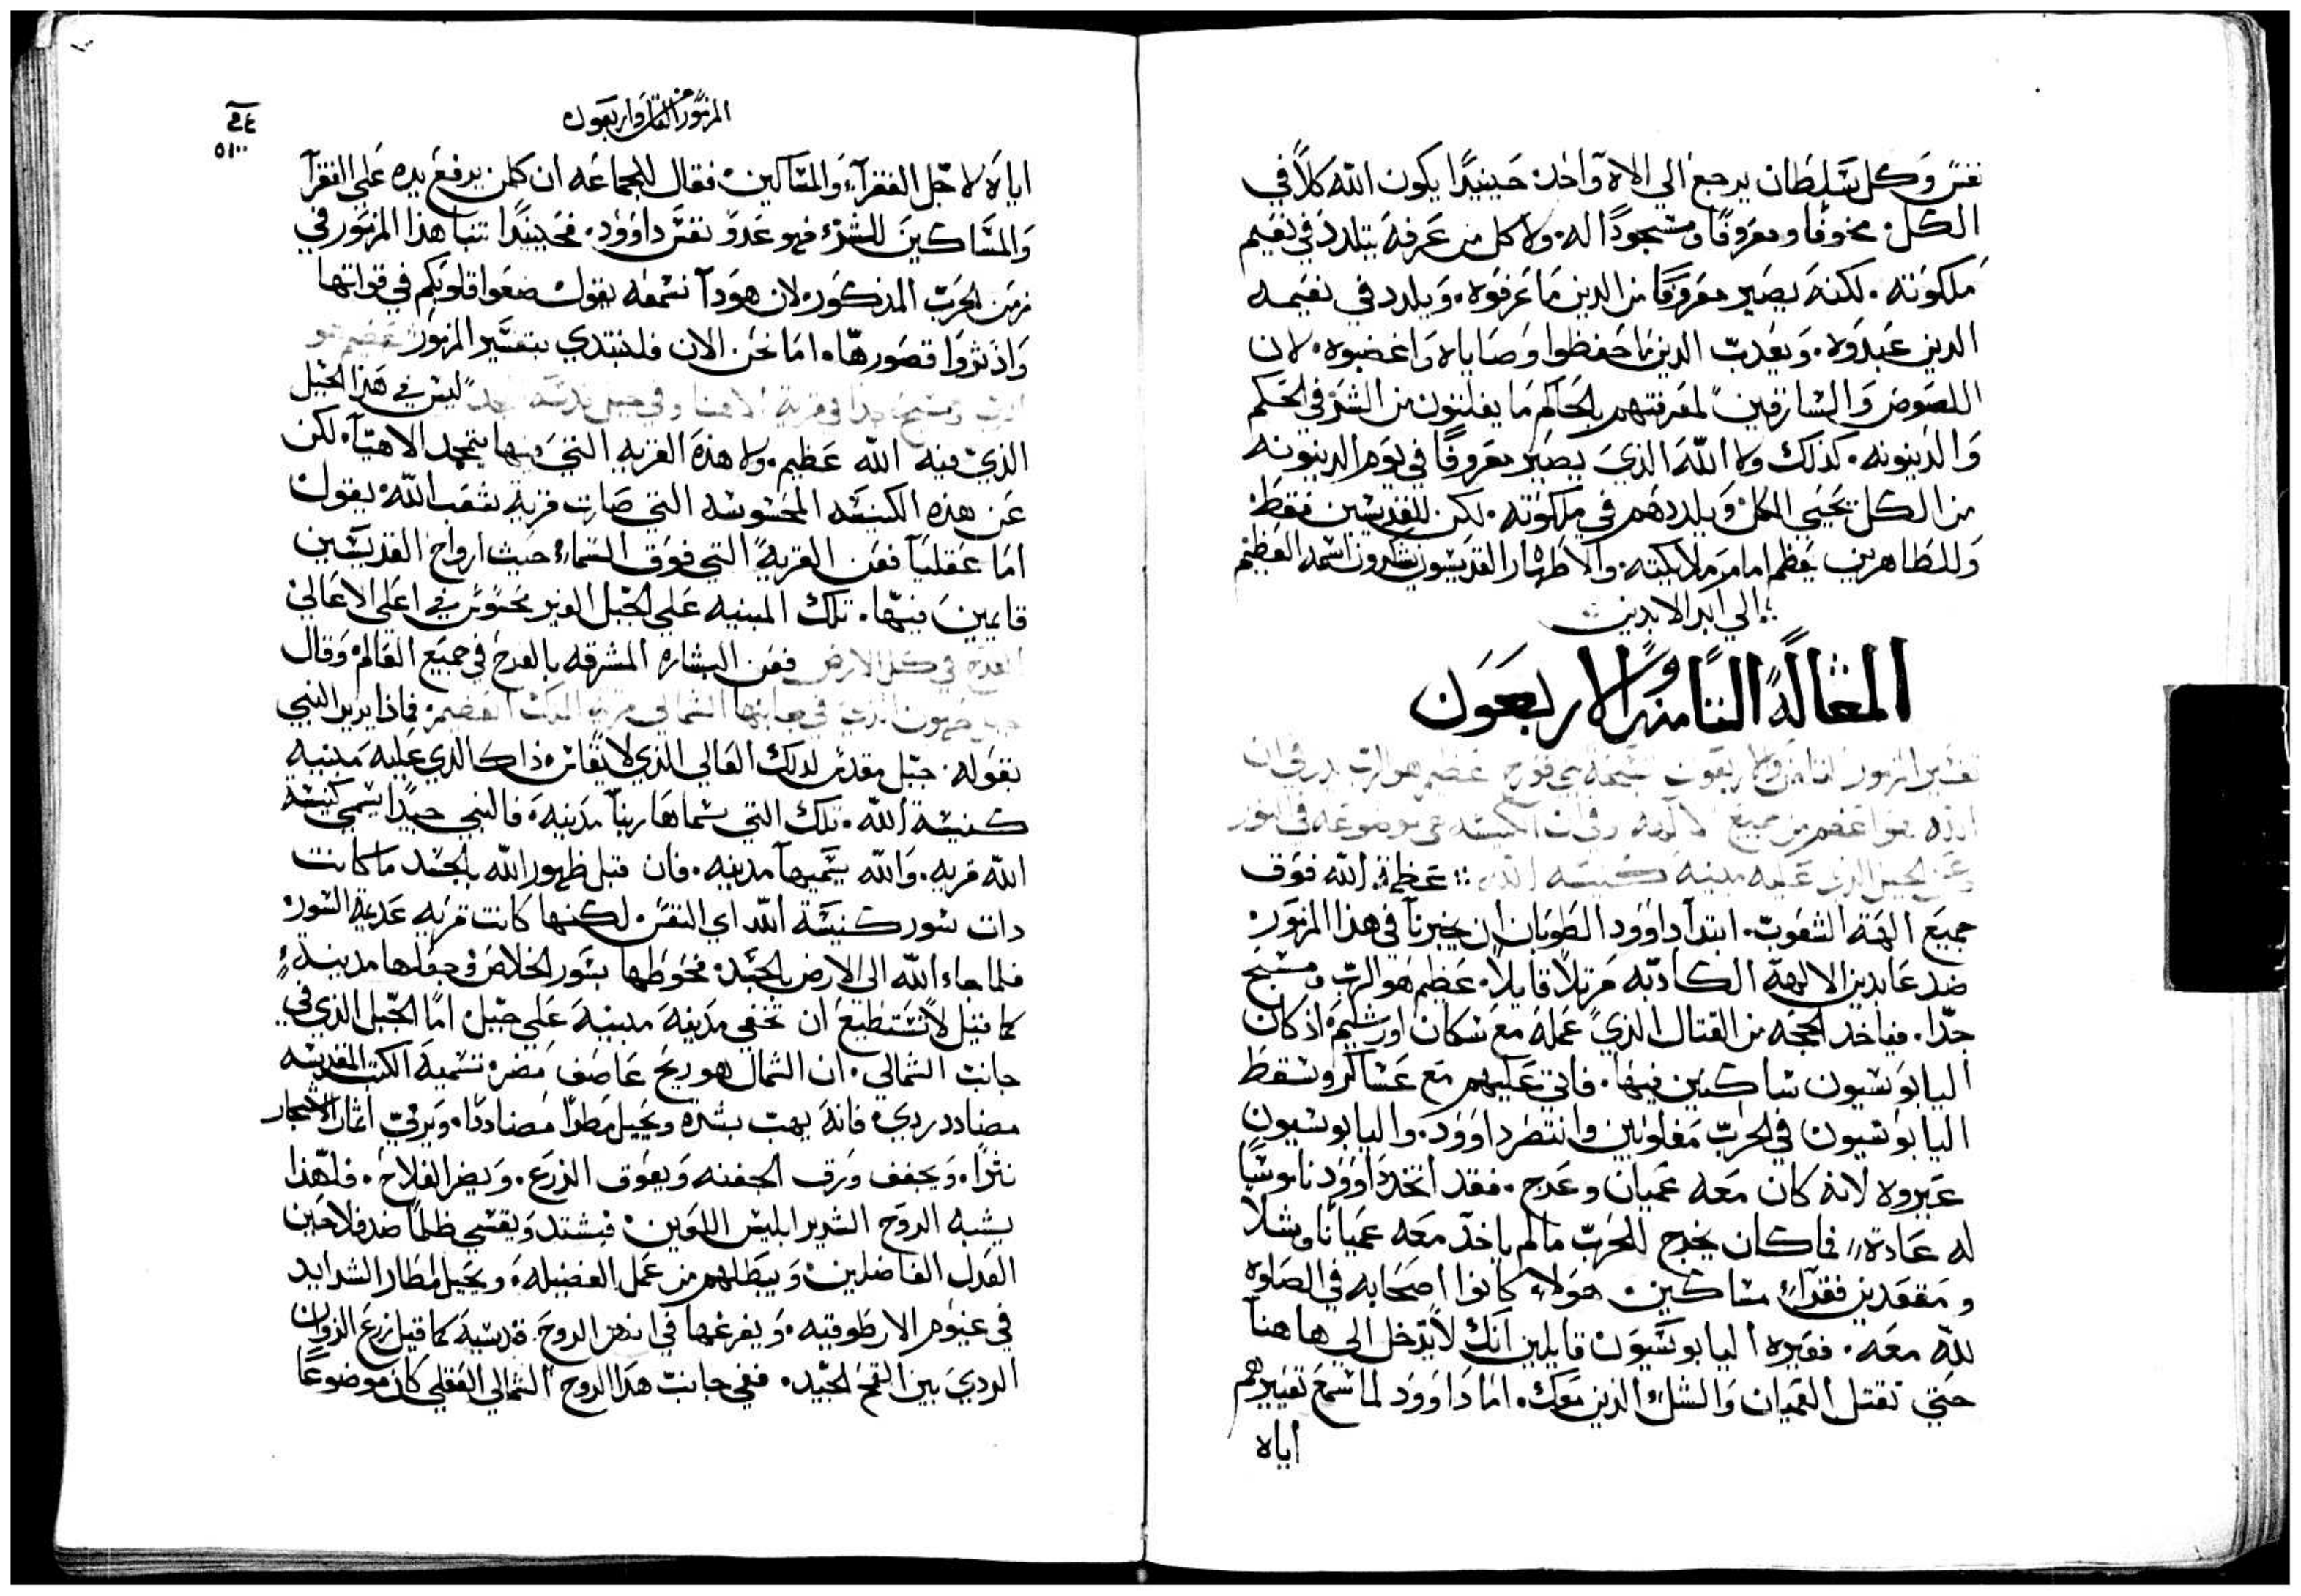 نفس وكل سلطان يرجع الي الاه واحد. حينيدًا يكون الله كلاً في
الكل. مخوفًا ومعروفًا ومسجودًا له. ولا كل من عرفه يتلدد في نعيم
ملكوته. لكنه يصير معروفًا من الدين ما عرفوه. ويلدد في نعيمه
الدين عبدوه. ويعدب الدين ما حفظوا وصاياه واغضبوه. لان
اللصوص والسارقين لمعرفتهم بالحاكم ما يفلتون من الشر في الحكم
والدينونه. كدلك ولا الله الذي يصير معروفًا في يوم الدينونه
من الكل يحيي الكل ويلددهم في ملكوته. لكن للقديسين فقط
وللطاهرين يعظم امام ملايكته. والاطهار القديسون يشكرون اسمه العظيم
الي ابد الابدين
المقالة الثامنه والاربعون
تفسير المزمور الثامن والاربعون تسبحة بني قورح عظيم هو الرب يدر في ان
الله هو اعظم من جميع الالهه وفي ان الكنيسه هي موضوعه في النور
وعن الجبل الذي عليه مبنيه كنيسه الله :: عظمة الله فوق
جميع الهة الشعوب. ابتدا داوود الطوبان ان يخبرنا في هذا المزمور
ضد عابدين الالهة الكادبه مرتلاً قايلاً. عظيم هو الرب ومسبح
جدًا. فياخد الحجه من القتال الذي عمله مع سكان اورشليم. اذ كان
اليابوسيون ساكنين فيها. فاتي عليهم مع عساكر وسقط
اليابوسيون في الحرب مغلوبين وانتصر داوود. واليابوسيون
عيروه لانه كان معه عميان وعرج. فقد اتخد داوود ناموسًا
له عادة فما كان يخرج للحرب ما لم ياخد معه عميانًا وشلاً
ومقعدين فقرآء مساكين هولاء كانوا اصحابه في الصلوه
لله معه. فعيره اليابوسيون قايلين انك لا تدخل الي هاهنا
حتي تقتل العميان والشل الذين معك. اما داوود لما سمع تعييرهم
اياه
المزمور الثامن واربعون
اياه لاجل الفقرآء والمساكين فقال للجماعه ان كلمن يرفع يده علي الفقرآ
والمساكين للشر فهو عدو نفس داوود. فحينيدًا تنبا هذا المزمور في
زمن الحرب المدكور. لان هودا نسمعه يقول ضعوا قلوبكم في قواتها
واذثروا قصورها. اما نحن الان فلنبتدي بتفسير المزمور عظيم هو
الرب ومسبح جدا في قرية الاهنا وفي جبل قدسه ليس في هذا الجبل
الذي فيه الله عظيم. ولا هذه القريه التي فيها يتمجد الاهنا. لكن
عن هذه الكنيسه المحسوسه التي صارت قرية شعب الله يقول
اما عقليًا فعن القرية التي فوق السماء حيث ارواح القديسين
قايمين فيها. تلك المبنيه علي الجبل الغير محسوس في اعلي الاعالي
الفرح في كل الارض فعن البشاره المشرقه بالفرح في جميع العالم وقال
جبل صهيون الذي في جانبها الشمالي قرية الملك العظيم. فماذا يريد النبي
بقوله جبل مقدس لدلك العالي الذي لا يقاس. ذاك الدي عليه مبنيه
كنيسة الله. تلك التي سماها ربنا مدنيه. فالنبي حيدًا يسمي كنيسة
الله قريه. والله يسميها مدينه. فان قبل ظهور الله بالجسد ما كانت
دات سور كنيسة الله اي النفس. لكنها كانت قريه عديمة السور
فلما جاء الله الي الارض بالجسد فحوطها بسور الخلاص وجعلها مدينه
كما قيل لا تستطيع ان تخفي مدينة مبنيه علي جبل. اما الجبل الذي في
جانب الشمالي. ان الشمال هو ريح عاصف مضر. تسميه الكتب المقدسه
مضادد ردي. فانه يهب بشده ويجيل مطرًا مضاددًا. ويرمي اثمار الاشجار
نثرًا. ويجفف ورق الجفنه ويعوق الزرع. ويضر الفلاح. فلهذا
يشبه الروح الشرير ابليس اللعين فيشتد ويقسي ظلمًا ضد فلاحين
العدل الفاضلين ويبطلهم من عمل الفضيله. ويجيل امطار الشدايد
في غيوم الارطوقيه. ويفرغها في اندهر الروح قدسيه كما قيل زرع الزوان
الردي بين القمح الجيد. ففي جانب هدا الروح الشمالي العقلي كان موضوعًا